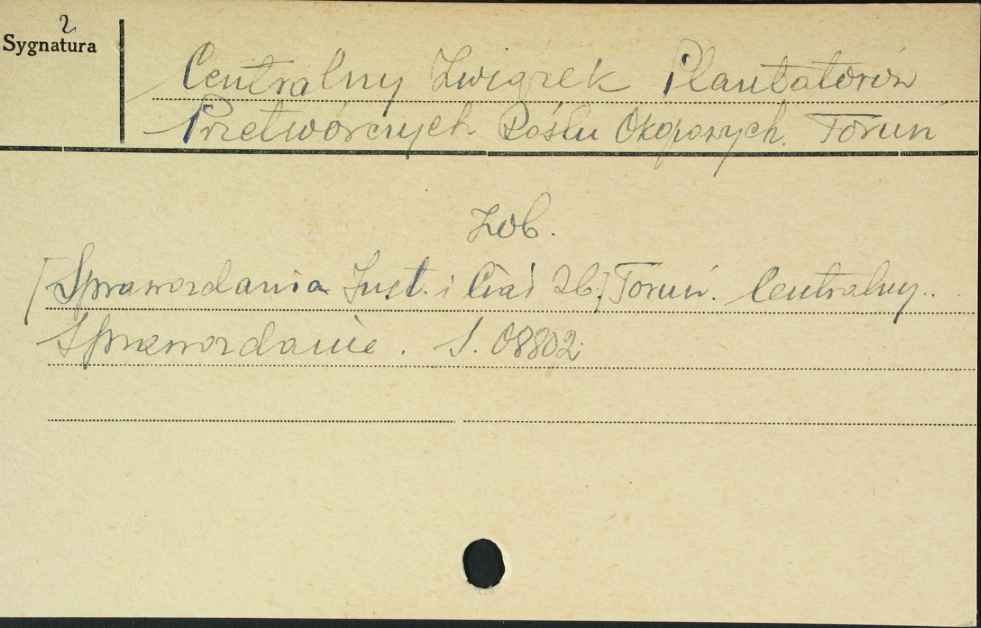 2
Sygnatura
Centralny Związek Plantatorów
Przetwórczych Roślin Okopowych. Toruń
Zob.
[Sprawozdania Inst. i Ciał Zb.] Toruń. Centralny..
Sprawozdanie. S. 08802